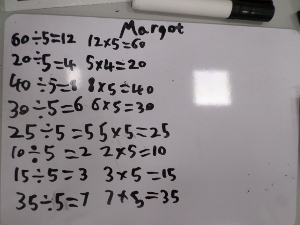 Margot
60÷5=12 12×5=60
20÷5=4 5×4=20
40÷5=8 8×5=40
30÷5=6 6×5=30
25÷5=5 5×5=25
10÷5=2 2×5=10
15÷5=3 3×5=15
35÷5=7 7×5=35